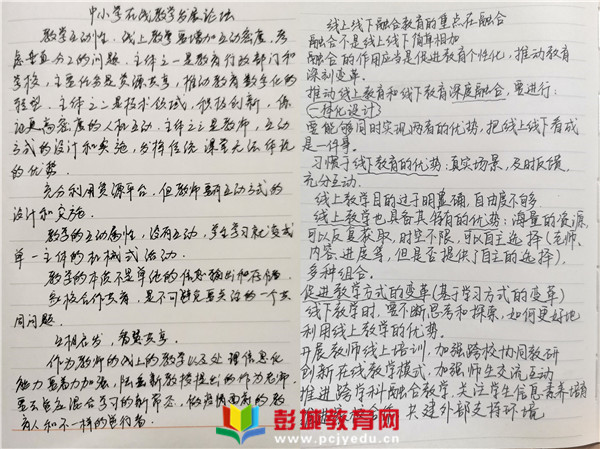 中小学在线教学发展论坛
教学互动性。线上教学要增加互动密度，考
虑垂直分工的问题。主体之一是教育行政部门和
学校，主要任务是资源共享，推动教育数字化的
转型。主体之二是技术领域，积极创新，保
证更高密度的人机互动。主体之三是教师，互动
方式的设计和实施，发挥传统课堂无法体现
的优势。
充分利用资源平台。但教师要研互动方式的
设计和实施。
教学的互动属性，没有互动，学生学习就变成
单一主体的机械式活动。
教学的本质不是单纯的信息输出和存储。
多校合作共育，是不可避免要关注的一个共
同问题。
互相启发，智慧共享。
作为教师的线上的教学以及处理信息化
能力要着力加强，陆董新教授提出的作为老师，
要去包互混合学习的新常态，做疫情面前的教
育人和不一样的坚行者。
线上线下融合教育的重点在融合
融合不是线上线下简单相加
融合的作用应当是促进教育个性化，推动教育
深刻变革。
推动线上教育和线下教育深度融合，要进行：
（一体化设计）
要能够同时实现两者的优势，把线上线下看成
是一件事。
习惯于线下教育的优势：真实场景，及时反馈，
充分互动。
线上教学目的过于明显确，自由度不够
线上教学也具备其特有的优势：海量的资源，
可以反复获取，时空不限，可以自主选择（老师、
内容、进度等，但是否提供了自主的选择），
多种组合。
促进教学方式的变革（基于学习方式的变革）
线下教学时，要不断思考和探索，如何更好地
利用线上教学的优势。
开展教师线上培训，加强跨校协同教研
创新在线教学模式，加强师生交流互动
推进跨学科融合教学，关注学生信息素养培育
共建外部支持环境
彭城教育网
www.pcjyedu.cn